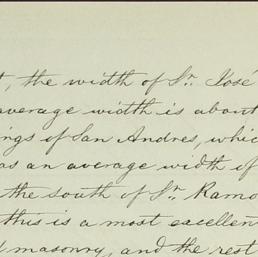 t, the width of Sr. José
average width is about
ings of San Andres, whic
as an average width of
the south of Sr. Ramo
this is a most excellen
d masonry, and the rest